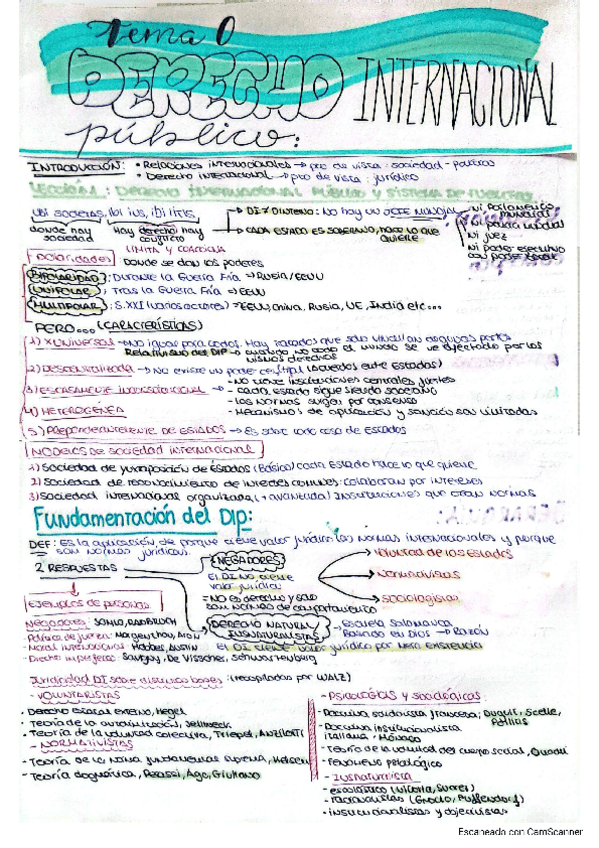 Tema 0
DERECHO INTERNACIONAL
público:
INTRODUCCIÓN: • Relaciones internacionales → pto de vista: sociedad - políticas
• Derecho internacional → pto de vista: jurídico
LECCIÓN 1: DERECHO INTERNACIONAL PÚBLICO Y SISTEMA DE FUENTES
Ubi societas, ibi ius, ibi litis
donde hay sociedad
Hay derecho hay conflicto
LIMITA Y COACCIONA
→ DI ≠ D INTERNO: NO hay un JEFE MUNDIAL
→ CADA ESTADO ES SOBERANO, HACE LO QUE QUIERE
ni parlamento mundial
ni policía mundial
ni juez
ni poder ejecutivo con poder
POLARIDADES Donde se dan los poderes
BIPOLARIDAD: Durante la Guerra Fría → Rusia/EEUU
UNIPOLAR: Tras la Guerra Fría → EEUU
MULTIPOLAR: S.XXI (varios actores) → EEUU, China, Rusia, UE, India etc...
PERO... (CARACTERÍSTICAS)
1) X UNIVERSAL → No igual para todos. Hay tratados que solo vinculan algunas partes
Relativismo del DIP → cuando no todo el mundo se ve afectado por los mismos derechos
2) DESCENTRALIZADA → No existe un poder central (Acuerdos entre estados)
3) ESCASAMENTE INSTITUCIONAL - No tiene instituciones centrales fuertes
- Cada estado sigue siendo soberano
- Las normas surgen por consenso
- Mecanismos de aplicación y sanción son limitados
4) HETEROGÉNEA
5) Preponderantemente DE ESTADOS → Es sobre todo cosa de estados
MODELOS DE SOCIEDAD INTERNACIONAL
1) Sociedad de yuxtaposición de Estados (Básico) cada Estado hace lo que quiere
2) Sociedad de reconocimiento de intereses comunes: colaboran por intereses
3) Sociedad internacional organizada (+ avanzada) Instituciones que crean normas
Fundamentación del Dip:
DEF: Es la aplicación de porque tiene valor jurídico las normas internacionales y porque son normas jurídicas.
2 RESPUESTAS
NEGADORES
El DI NO tiene valor jurídico
= No es derecho y solo son normas de comportamiento
Voluntad de los Estados
Normativistas
sociologistas
DERECHO NATURAL / IUSNATURALISTAS
→ Escuela Salamanca
Basado en Dios → Razón
El DI tiene valor jurídico por mera existencia
Ejemplos de personas
Negadores: Somló, Radbruch
- Política de fuerza: Morgenthau, Aron
- Moral internacional: Hobbes, Austin
- Directo imperfecto: Savigny, De Visscher, Schwarzenberg
Juridicidad DI sobre distintas bases: (recopiladas por WALZ)
- VOLUNTARISTAS
- Derecho estatal externo, Hegel
- Teoría de la autolimitación, Jellineck
- Teoría de la voluntad colectiva, Triepel, Anzilotti
- NORMATIVISTAS
- Teoría de la norma fundamental suprema, Kelsen
- Teoría dogmática, Perassi, Ago, Giuliano
- PSICOLOGÍAS y sociológicas
- Doctrina solidarista francesa; Duguit, Scelle, Politis
- Doctrina institucionalista italiana: Mónaco
- Teoría de la voluntad del cuerpo social, Quadri
- Fenómeno patológico
- Iusnaturalista
- escolástico (Vitoria, Suárez)
- racionalistas (Grocio, Puffendorf)
- institucionalistas y objetivistas
Escaneado con CamScanner